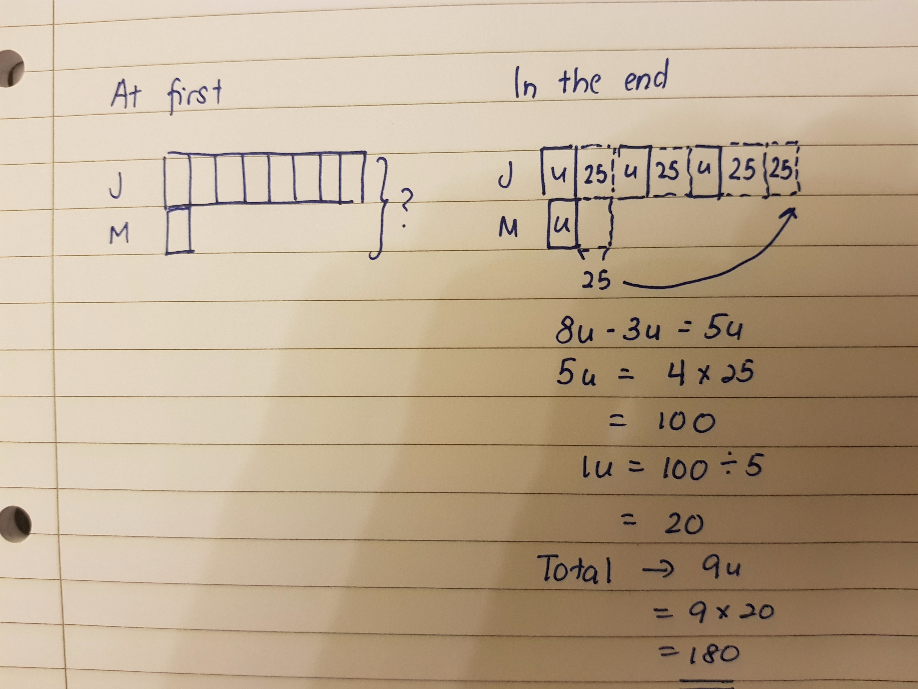 At first
J
M
?
In the end
J u 25 u 25 u 25 25
M u
25
8u - 3u = 5u
5u = 4 × 25
= 100
1u = 100 ÷ 5
= 20
Total → 9u
= 9 × 20
= 180